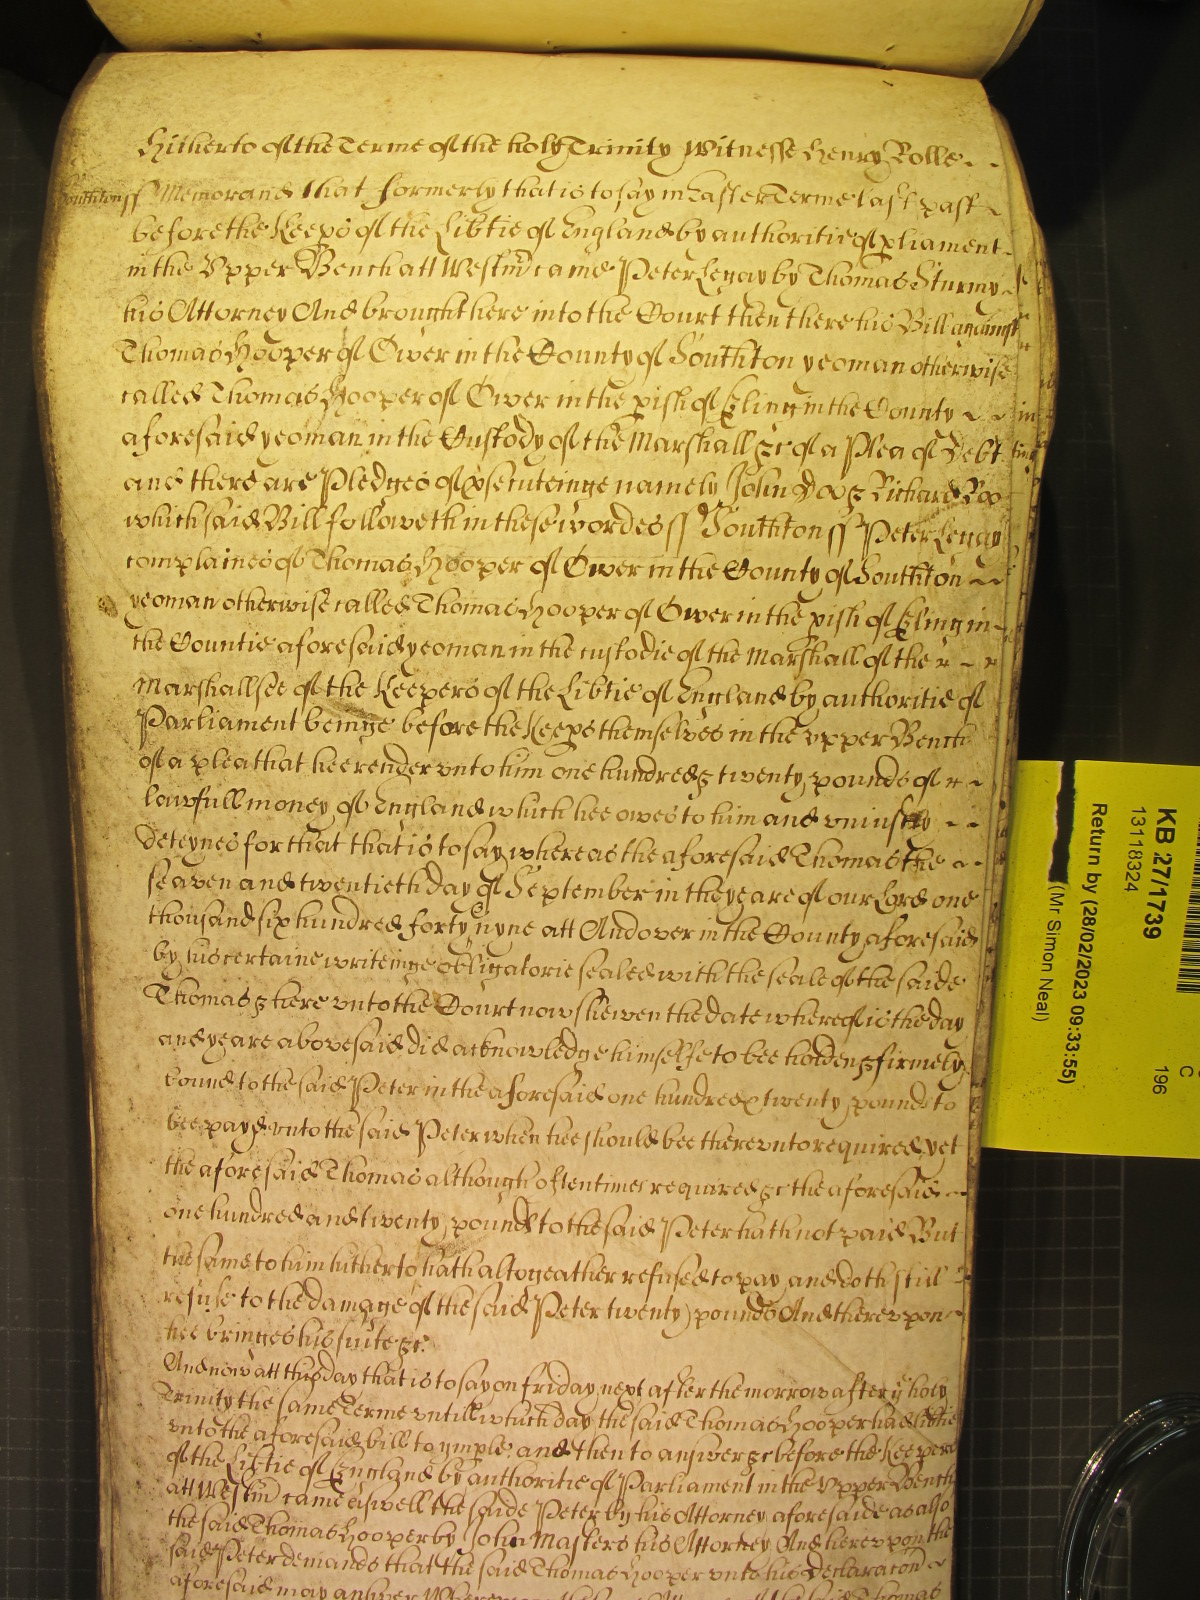 Hitherto of the Terme of the holy Trinity Witnesse Henry Rolle
Southton ss Memorand that formerly that is to say in Easter Terme last past
before the Keeps of the Libtie of England by authoritie of pliament
in the Upper Bench att Westm came Peter Legay by Thomas Sturmy
his Attorney And brought here into the Court then there his Bill against
Thomas Hooper of Ower in the County of Southton yeoman otherwise
called Thomas Hooper of Ower in the pish of Eling in the County
aforesaid yeoman in the Custody of the Marshall &c of a Plea of Debt
and there are Pledges of psecuteinge namely John Doo & Richard Roo
which said Bill followeth in these wordes ss Southton ss Peter Legay
complaines of Thomas Hooper of Ower in the County of Southton
yeoman otherwise called Thomas Hooper of Ower in the pish of Eling in
the Countie aforesaid yeoman in the custodie of the Marshall of the
Marshallsee of the Keepers of the Libtie of England by authoritie of
Parliament beinge before the Keeps themselves in the upper Bench
of a plea that hee render unto him one hundred & twenty pounds of
lawfull money of England which hee owes to him and uniustly
deteynes for that that is to say whereas the aforesaid Thomas the
seaven and twentieth day of September in the yeare of our Lord one
thousand six hundred forty nyne att Andover in the County aforesaid
by his certaine writeinge obligatorie sealed with the seale of the saide
Thomas & here unto the Court now shewen the date whereof is the day
and yeare abovesaid did acknowledge himselfe to bee holden & firmely
bound to the said Peter in the aforesaid one hundred & twenty pounds to
bee payd unto the said Peter when hee should bee thereunto required yet
the aforesaid Thomas although oftentimes required &c the aforesaid
one hundred and twenty pounds to the said Peter hath not paid But
the same to him hitherto hath altogeather refused to pay and doth still
refuse to the damage of the said Peter twenty pounds And thereupon
hee bringes his suite &c.
And now att this day that is to say on friday next after the morrow after ye holy
Trinity the same Terme untill which day the said Thomas Hooper had libtie
unto the aforesaid bill to imple and then to answer &c before the Keepers
of the Libtie of England by authoritie of Parliament in the Upper Bench
att Westm came aswell the saide Peter by his Attorney aforesaide as also
the said Thomas Hooper by John Masters his Attorney And hereupon the
said Peter demands that the said Thomas Hooper unto his Declaracon
aforesaid may answer
KB 27/1739
13118324
Return by (28/02/2023 09:33:55)
(Mr Simon Neal)
C
196